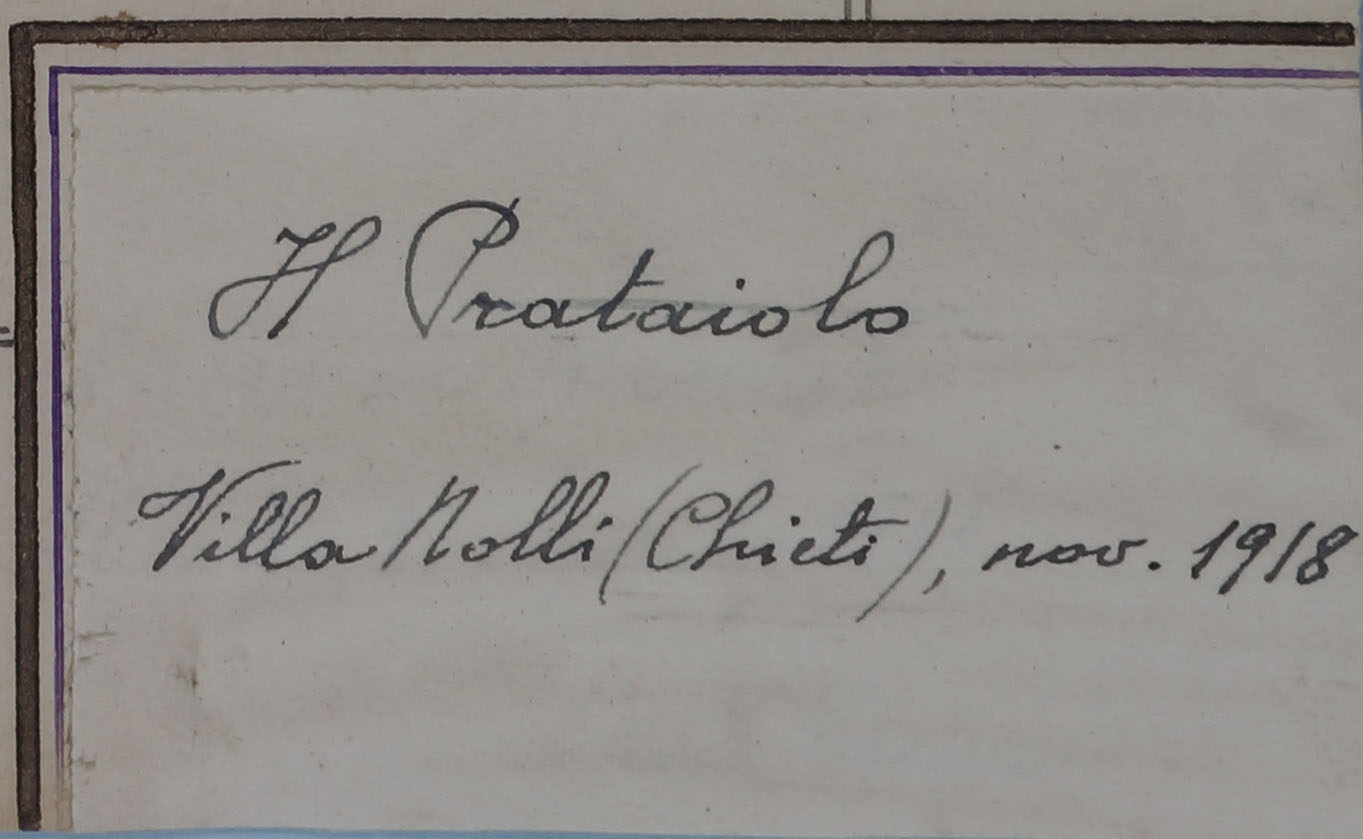 Il Prataiolo
Villa Nolli (Chieti), nov. 1918